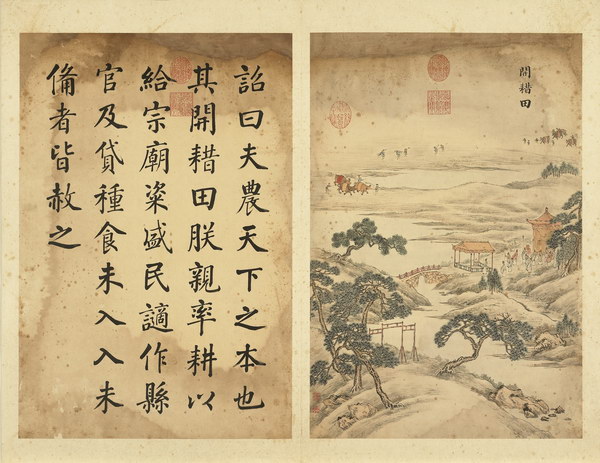 開耤田
詔曰夫農天下之本也
其開耤田朕親率耕以
給宗廟粢盛民謫作縣
官及貸種食未入入未
備者皆赦之